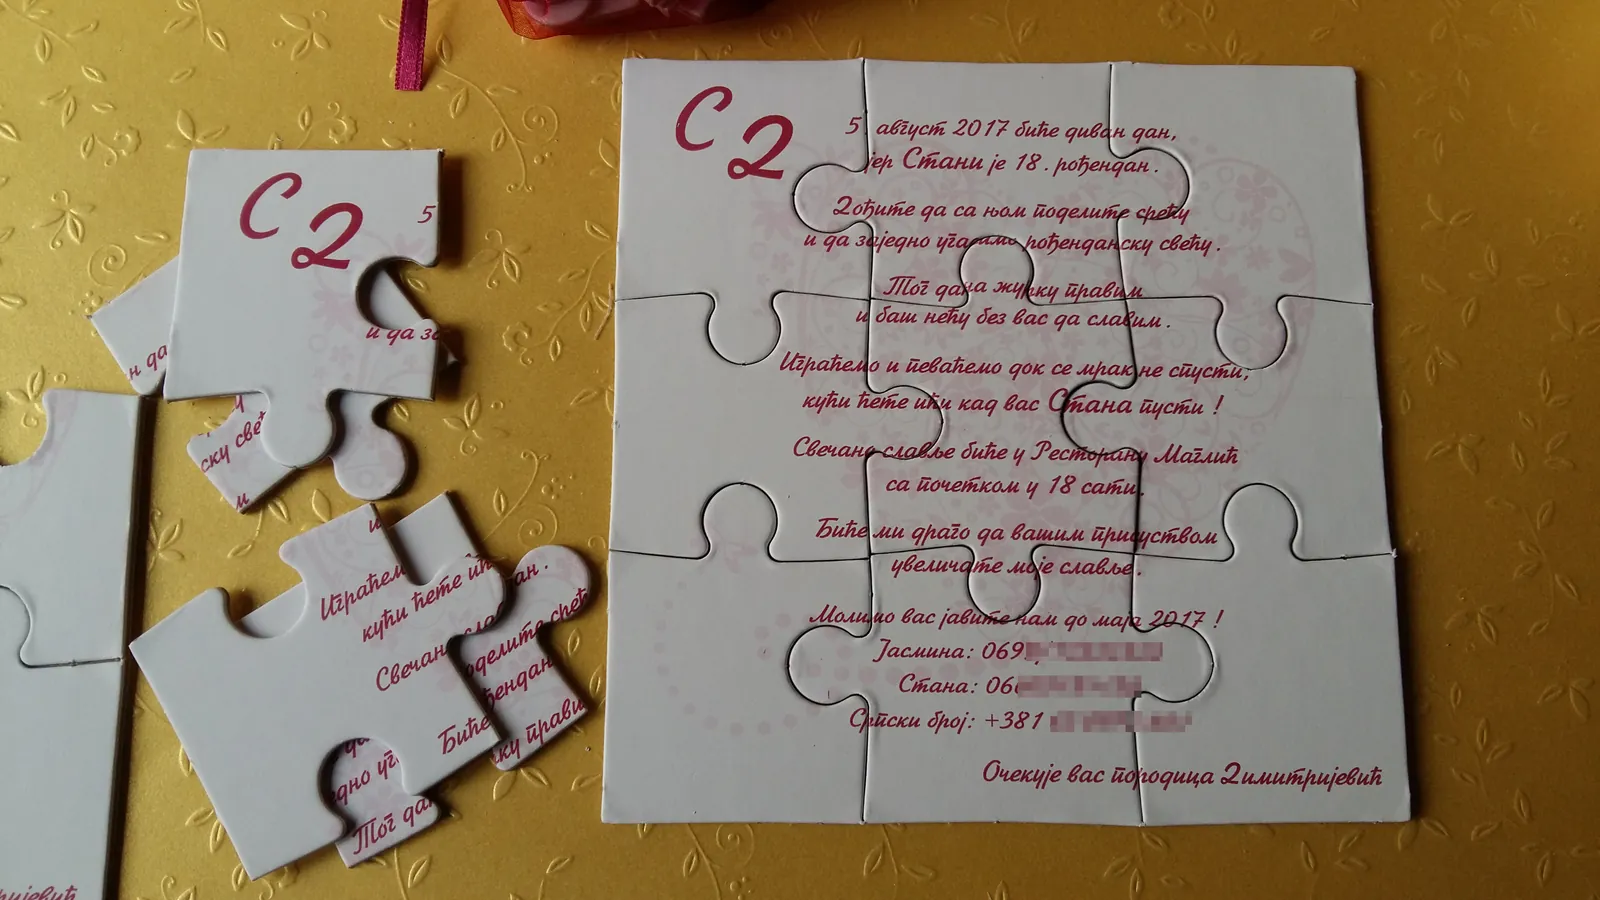 С Д
5. август 2017 биће диван дан,
јер Стани је 18. рођендан.
Дођите да са њом поделите срећу
и да заједно угасимо рођенданску свећу.
Тог дана журку правим
и баш нећу без вас да славим.
Играћемо и певаћемо док се мрак не спусти,
кући ћете ићи кад вас Стана пусти !
Свечано славље биће у Ресторану Маглић
са почетком у 18 сати.
Биће ми драго да вашим присуством
увеличате моје славље.
Молимо вас јавите нам до маја 2017 !
Јасмина: 069
Стана: 06
Српски број: +381
Очекује вас породица Димитријевић
С Д
5
и да за
н да
ску све
м
и
Играћем
кући ћете ић
Свечан
Биће
ан.
оделите срећ
ђендан
ку прави
едно уг
Тог дан
ријевић